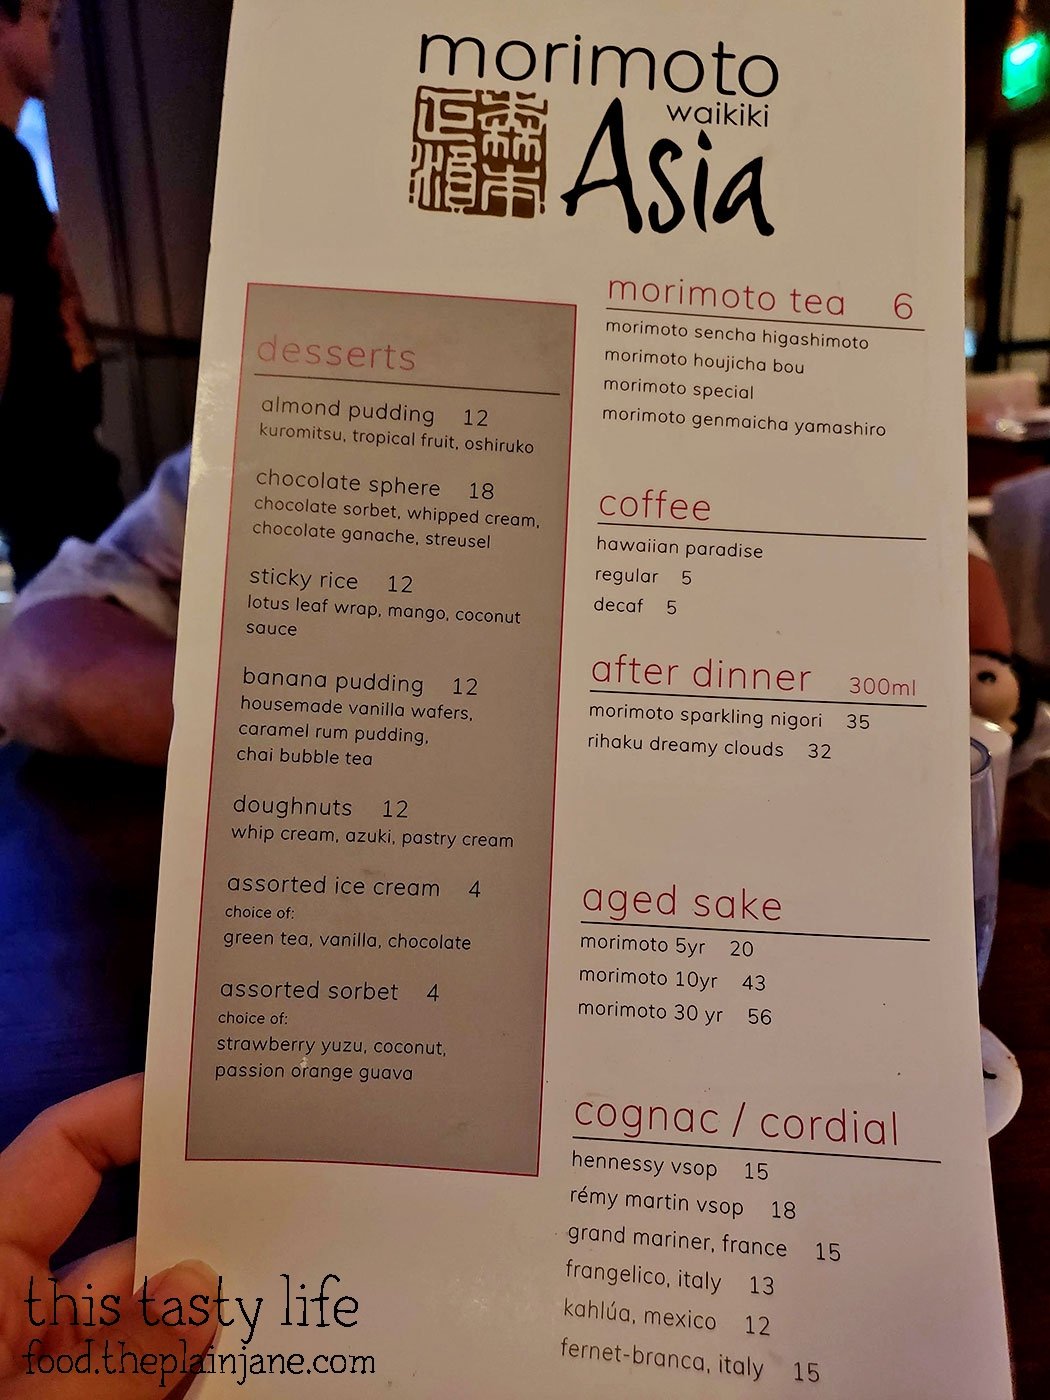 morimoto
waikiki
Asia
正 森
濱 本
desserts
almond pudding 12
kuromitsu, tropical fruit, oshiruko
chocolate sphere 18
chocolate sorbet, whipped cream,
chocolate ganache, streusel
sticky rice 12
lotus leaf wrap, mango, coconut
sauce
banana pudding 12
housemade vanilla wafers,
caramel rum pudding,
chai bubble tea
doughnuts 12
whip cream, azuki, pastry cream
assorted ice cream 4
choice of:
green tea, vanilla, chocolate
assorted sorbet 4
choice of:
strawberry yuzu, coconut,
passion orange guava
morimoto tea 6
morimoto sencha higashimoto
morimoto houjicha bou
morimoto special
morimoto genmaicha yamashiro
coffee
hawaiian paradise
regular 5
decaf 5
after dinner 300ml
morimoto sparkling nigori 35
rihaku dreamy clouds 32
aged sake
morimoto 5yr 20
morimoto 10yr 43
morimoto 30 yr 56
cognac / cordial
hennessy vsop 15
rémy martin vsop 18
grand mariner, france 15
frangelico, italy 13
kahlúa, mexico 12
fernet-branca, italy 15
this tasty life
food.theplainjane.com